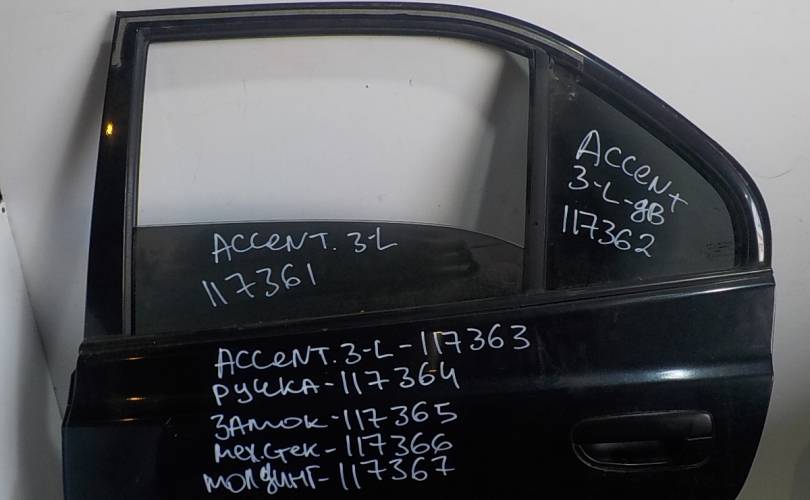 ACCENT. 3-L
117361
ACCENT
3-L-дв
117362
ACCENT. 3-L-117363
РУЧКА-117364
ЗАМОК-117365
мех.стек-117366
молдинг-117367